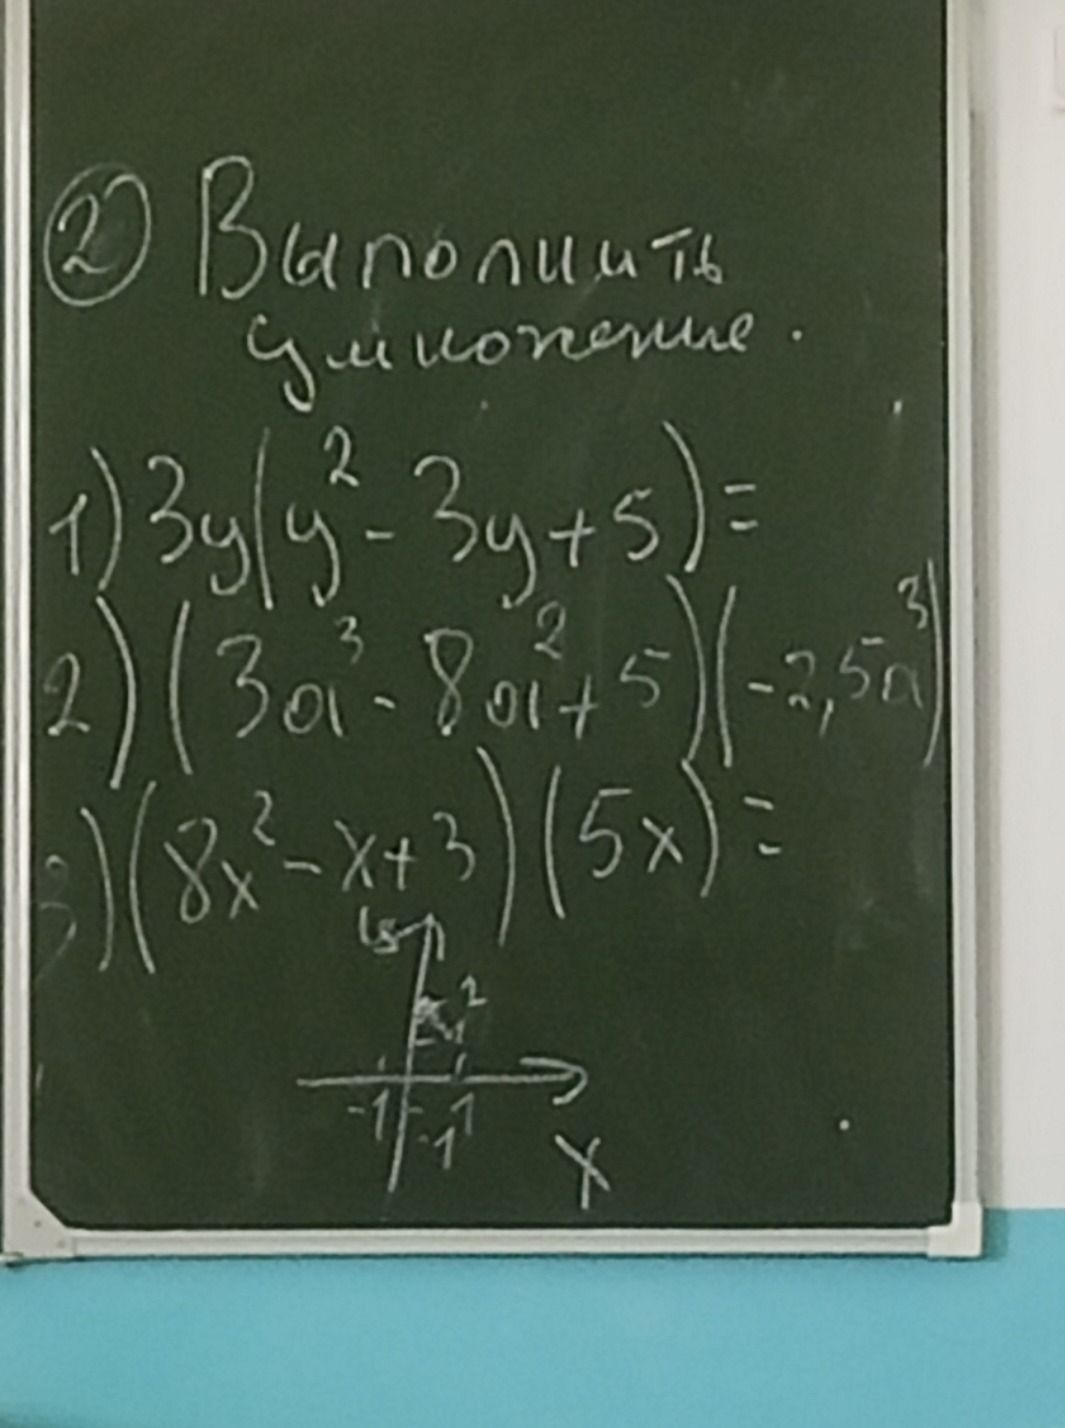 ② Выполнить
умножение.
1) 3y(y² - 3y + 5) =
2) (3a³ - 8a² + 5)(-2,5a³)
3) (8x² - x + 3)(5x) =
y
2
1
-1 1
-1
x